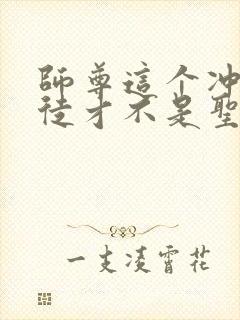 師尊這个冲
徒才不是聖
一支凌霄花